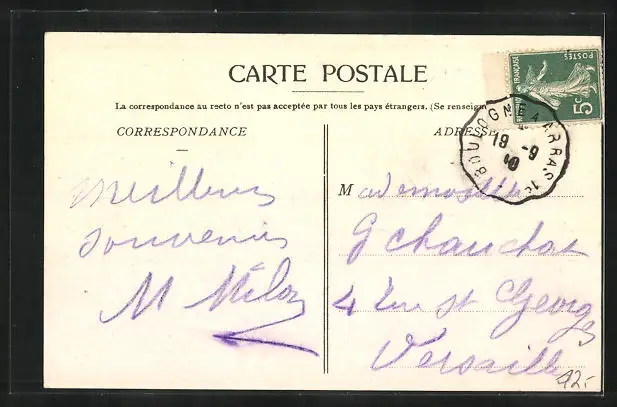 CARTE POSTALE
La correspondance au recto n'est pas acceptée par tous les pays étrangers. (Se renseign
CORRESPONDANCE
ADRESS
RÉPUBLIQUE FRANÇAISE
POSTES
5c
BOULOGNE A ARRAS 1º
19 -9
10
Meilleurs
souvenirs
M
Mademoiselle
G Chauchat
4 Rue St Georges
Versailles
12.-